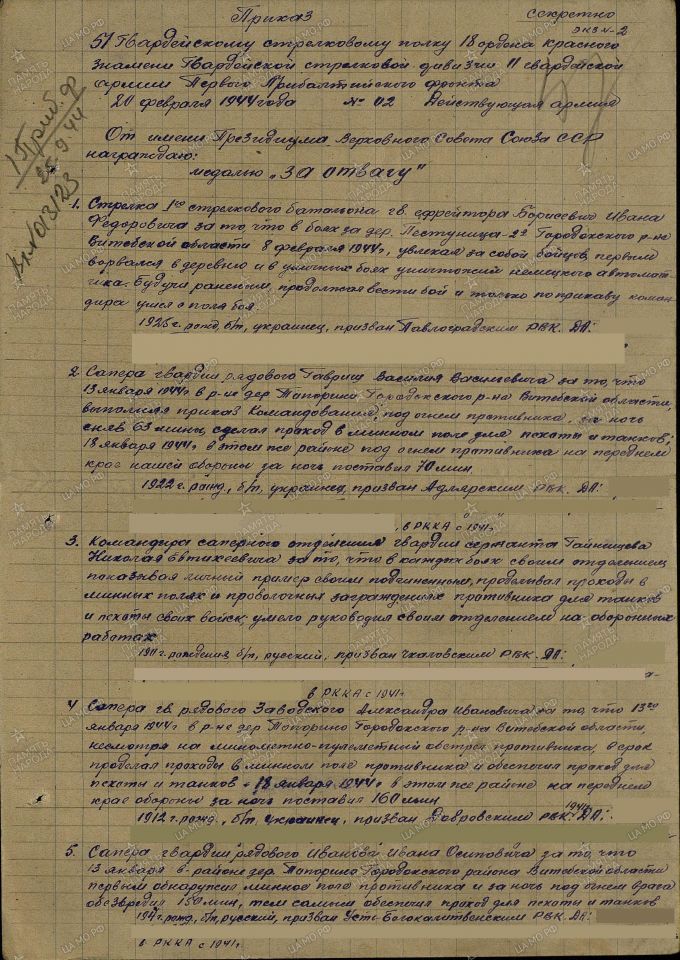 Приказ
Секретно
экз № 2
51 Гвардейскому стрелковому полку 18 ордена красного
знамени Гвардейской стрелковой дивизии 11 гвардейской
армии Первого Прибалтийского фронта
20 февраля 1944 года № 02 Действующая армия
1 Приб. ф
25.9.44
Вх №013123
От имени Президиума Верховного Совета Союза ССР
награждаю:
медалью „За отвагу"
1. Стрелка 1го стрелкового батальона гв. ефрейтора Борисевич Ивана
Федоровича за то, что в боях за дер. Пестуница-2я Городокского р-на
Витебской области 8 февраля 1944г, увлекая за собой бойцов, первым
ворвался в деревню и в уличных боях уничтожил немецкого автомат-
чика. Будучи раненым, продолжал вести бой и только по приказу коман-
дира ушел с поля боя.
1925 г. рожд, б/п, украинец, призван Павлоградским РВК. ДА:
2. Сапера гвардии рядового Гавриш Василия Васильевича за то, что
13 января 1944г в р-не дер Топорино Городокского р-на Витебской области,
выполняя приказ командования, под огнем противника, за ночь
сняв 63 мины, сделал проход в минном поле для пехоты и танков;
18 января 1944г в этом же районе под огнем противника на переднем
крае нашей обороны за ночь поставил 70 мин.
1922 г. рожд, б/п, украинец, призван Адлярским РВК. ДА:
, в РККА с 1941г.
3. Командира саперного отделения гвардии сержанта Гайнищева
Николая Евтихеевича за то, что в каждых боях своим отделением
показывая личный пример своим подчиненным, проделывал проходы в
минных полях и проволочных заграждениях противника для танков
и пехоты своих войск, умело руководил своим отделением на оборонных
работах
1911 г. рождения, б/п, русский, призван Чкаловским РВК. ДА:
в РККА с 1941г
4 Сапера гв. рядового Заводского Александра Ивановича за то, что 13го
января 1944г в р-не дер Топорино Городокского р-на Витебской области,
несмотря на минометно-пулеметный обстрел противника, в срок
проделал проходы в минном поле противника и обеспечил проход для
пехоты и танков. 18 января 1944г в этом же районе на переднем
крае обороны за ночь поставил 160 мин
1912 г. рожд, б/п, украинец, призван РВК 1941г ДА:
5. Сапера гвардии рядового Иванова Ивана Осиповича за то, что
13 января в районе дер. Топорино Городокского района Витебской области
первым обнаружил минное поле противника и за ночь под огнем врага
обезвредил 150 мин, тем самым обеспечил проход для пехоты и танков
рожд, б/п, русский, призван Усть-Белокалитвенским РВК. ДА:
в РККА с 1941г.